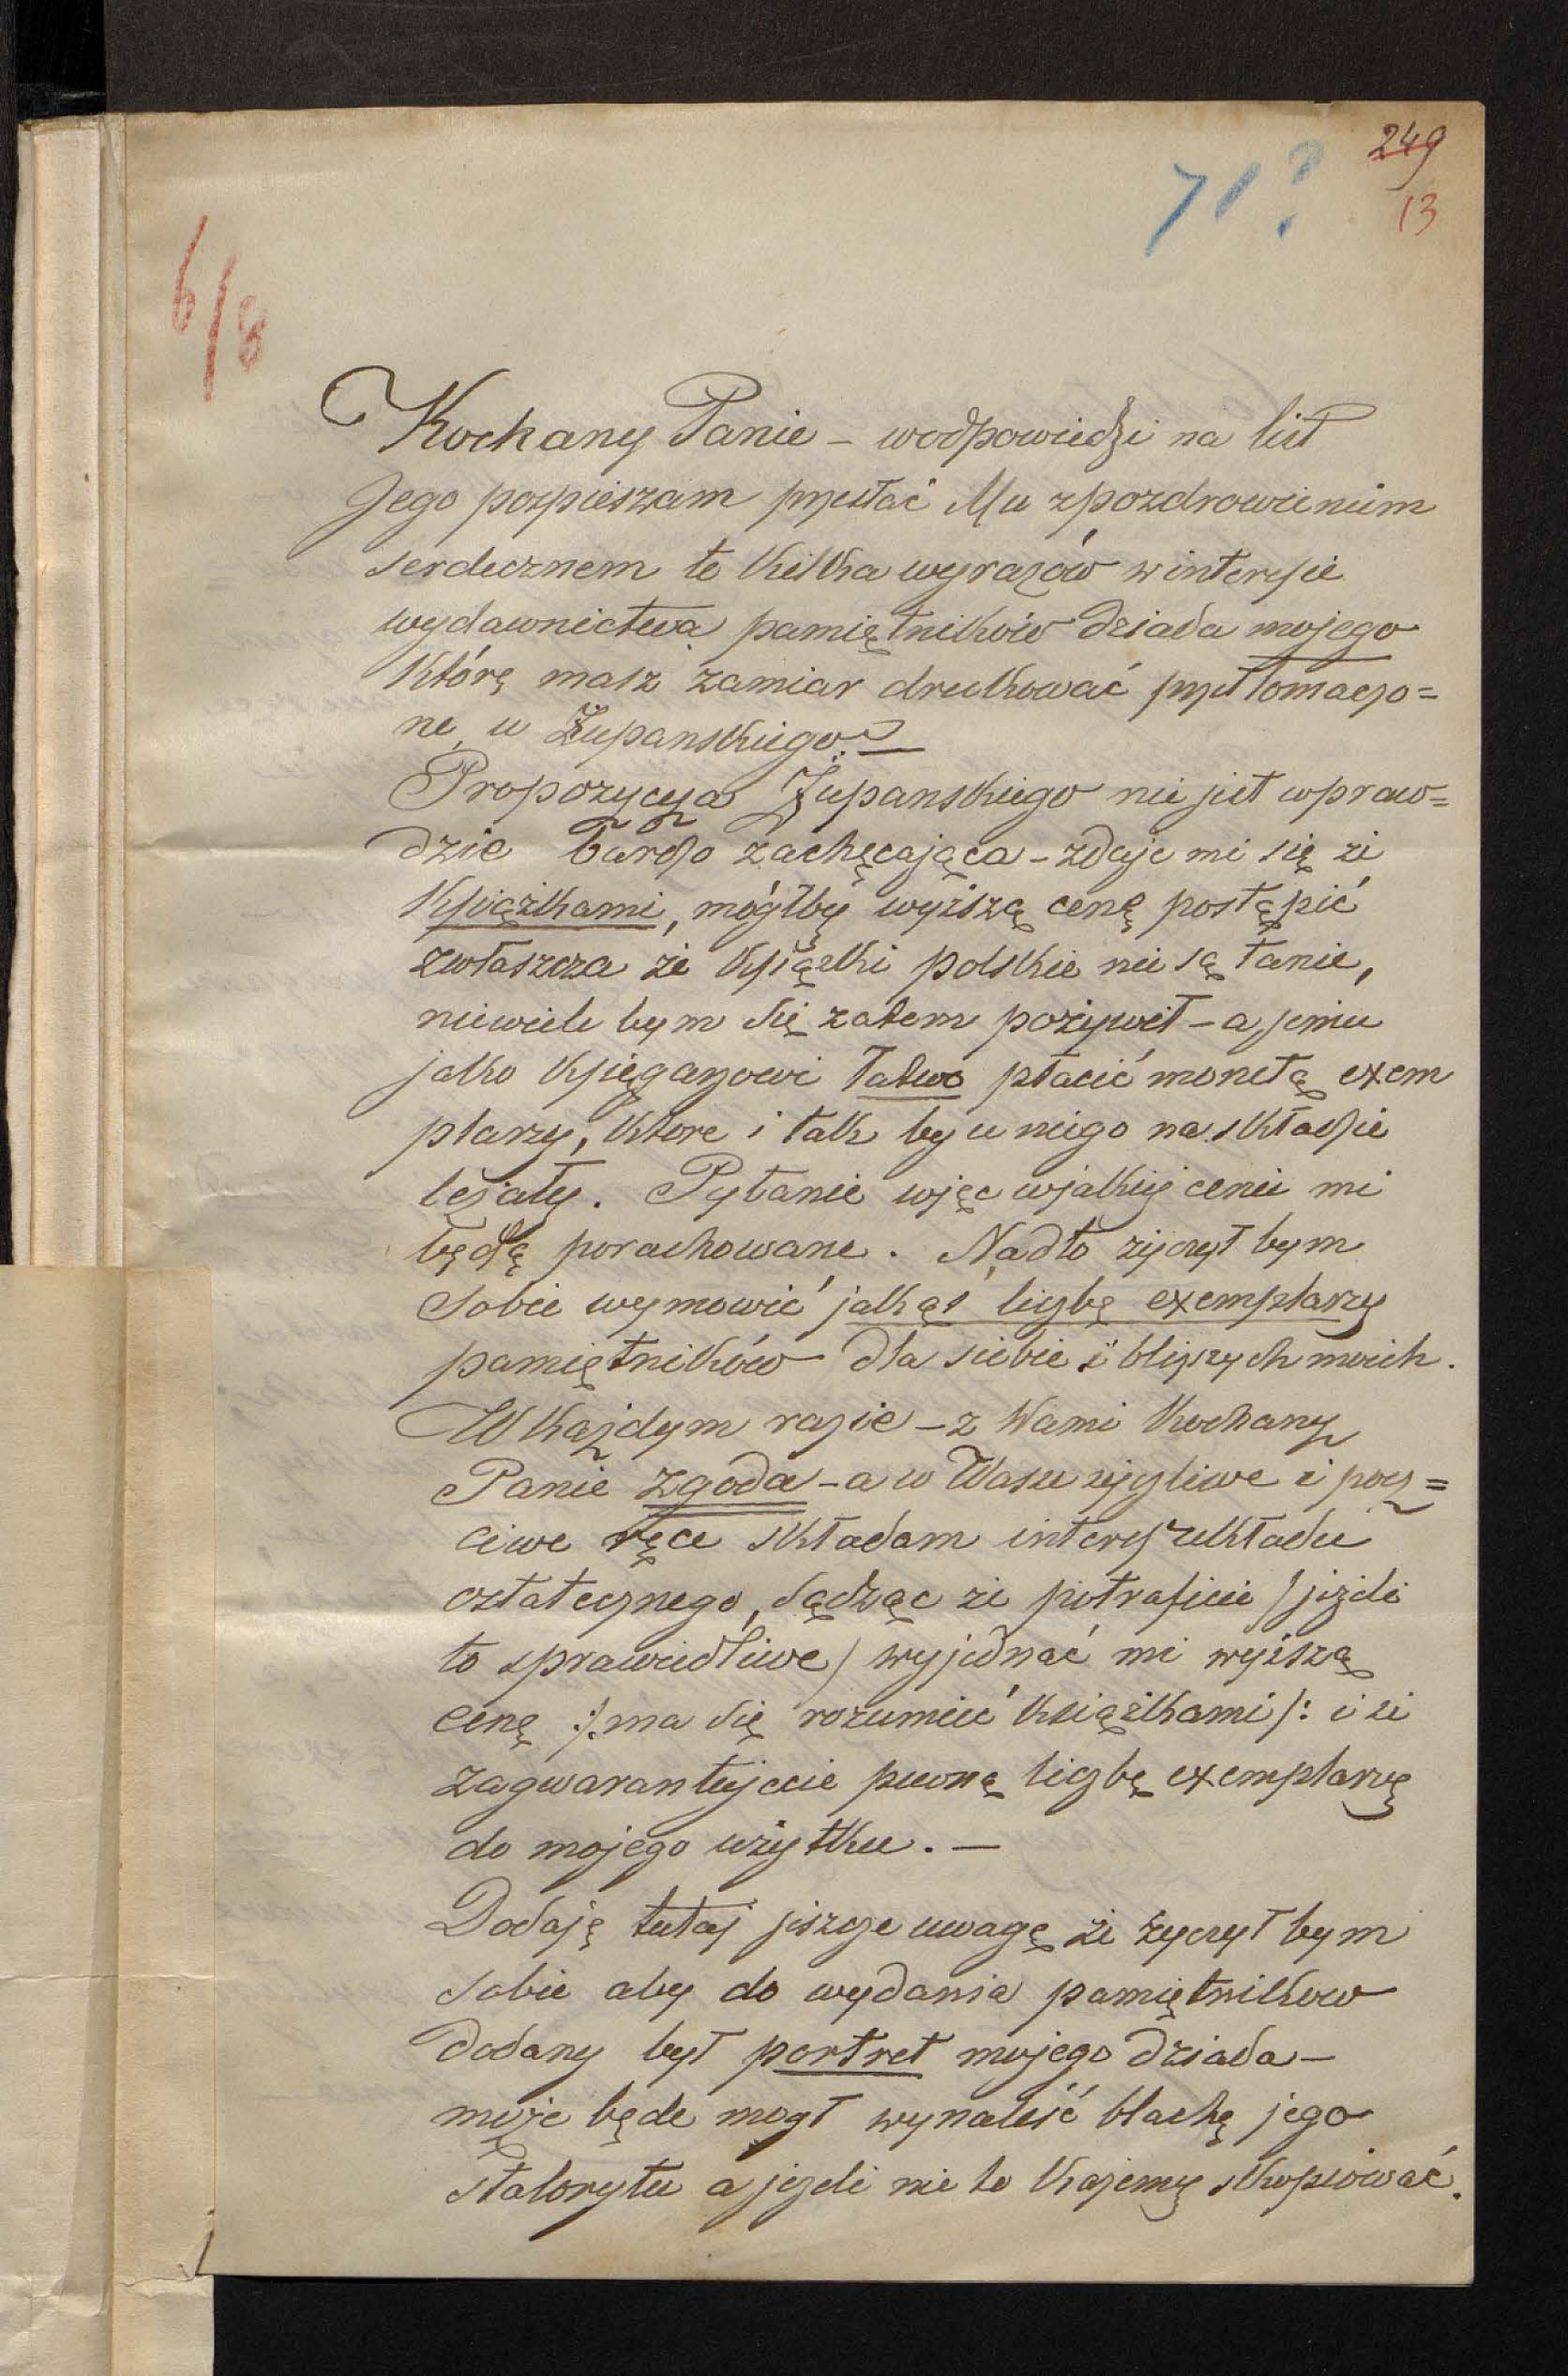 249
71?
13
6/8
Kochany Panie – w odpowiedzi na list
Jego pospieszam przesłać Mu z pozdrowieniem
serdecznem te kilka wyrazów w interesie
wydawnictwa pamiętników dziada mojego
którę masz zamiar drukować przetłomaczo=
ne u Żupanskiego. –
Propozycya Żupanskiego nie jest wpraw=
dzie bardzo zachęcająca – zdaje mi się że
Książkami, mógłby wyższą cenę postąpić
zwłaszcza że książki polskie nie są tanie,
niewiele bym się zatem pożywił – a jemu
jako księgarzowi łatwo płacić monetą exem
plarzy, które i tak by u niego na składzie
leżały. Pytanie więc w jakiej cenie mi
będą porachowane. Nadto życzył bym
sobie wymowić jakąś liczbę exemplarzy
pamiętników dla siebie i bliższych moich.
W każdym razie – z Wami Kochany
Panie zgoda – a w Wasze życzliwe i pocz=
ciwe ręce składam interes układu
ostatecznego, sądząc że potraficie /jeżeli
to sprawiedliwe/ wyjednać mi wyższą
cenę :/ma się rozumieć książkami/: i że
zagwarantujecie pewną liczbę exemplarzę
do mojego użytku. –
Dodaję tutaj jeszcze uwagę że życzył bym
sobie aby do wydania pamiętnikow
dodany był portret mojego dziada –
może będe mogł wynaleść blachę jego
stalorytu a jeżeli nie to każemy skopiować.